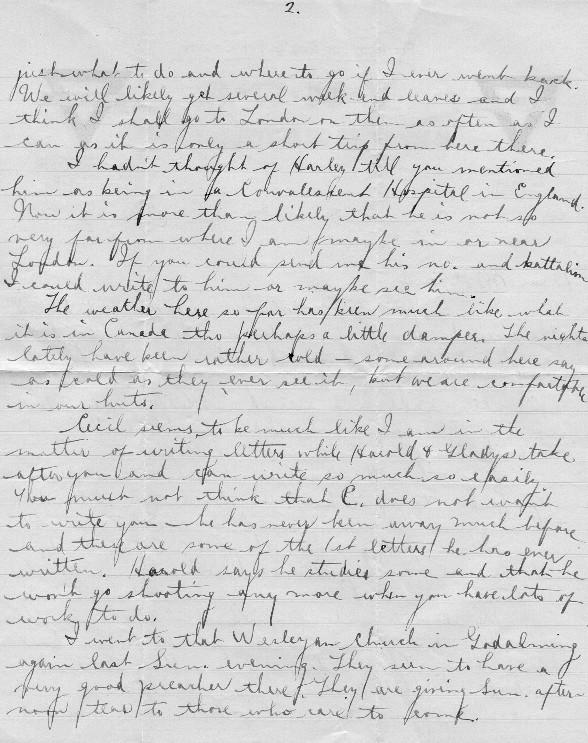 2.
just what to do and where to go if I ever went back.
We will likely get several week-end leaves and I
think I shall go to London on them as often as I
can as it is only a short trip from here there.
I hadn't thought of Harley till you mentioned
him as being in a Convalescent Hospital in England.
Now it is more than likely that he is not so
very far from where I am, maybe in or near
London. If you could send me his no. and battalion
I could write to him or maybe see him.
The weather here so far has been much like what
it is in Canada tho perhaps a little damper. The nights
lately have been rather cold – some around here say
as cold as they ever see it, but we are comfortable
in our huts.
Cecil seems to be much like I am in the
matter of writing letters while Harold & Gladys take
after you and can write so much so easily.
You must not think that C. does not want
to write you – he has never been away much before
and these are some of the 1st letters he has ever
written. Harold says he studies some and that he
won't go shooting any more when you have lots of
work to do.
I went to that Wesleyan Church in Godalming
again last Sun. evening. They seem to have a
very good preacher there. They are giving Sun. after-
noon teas to those who care to come.